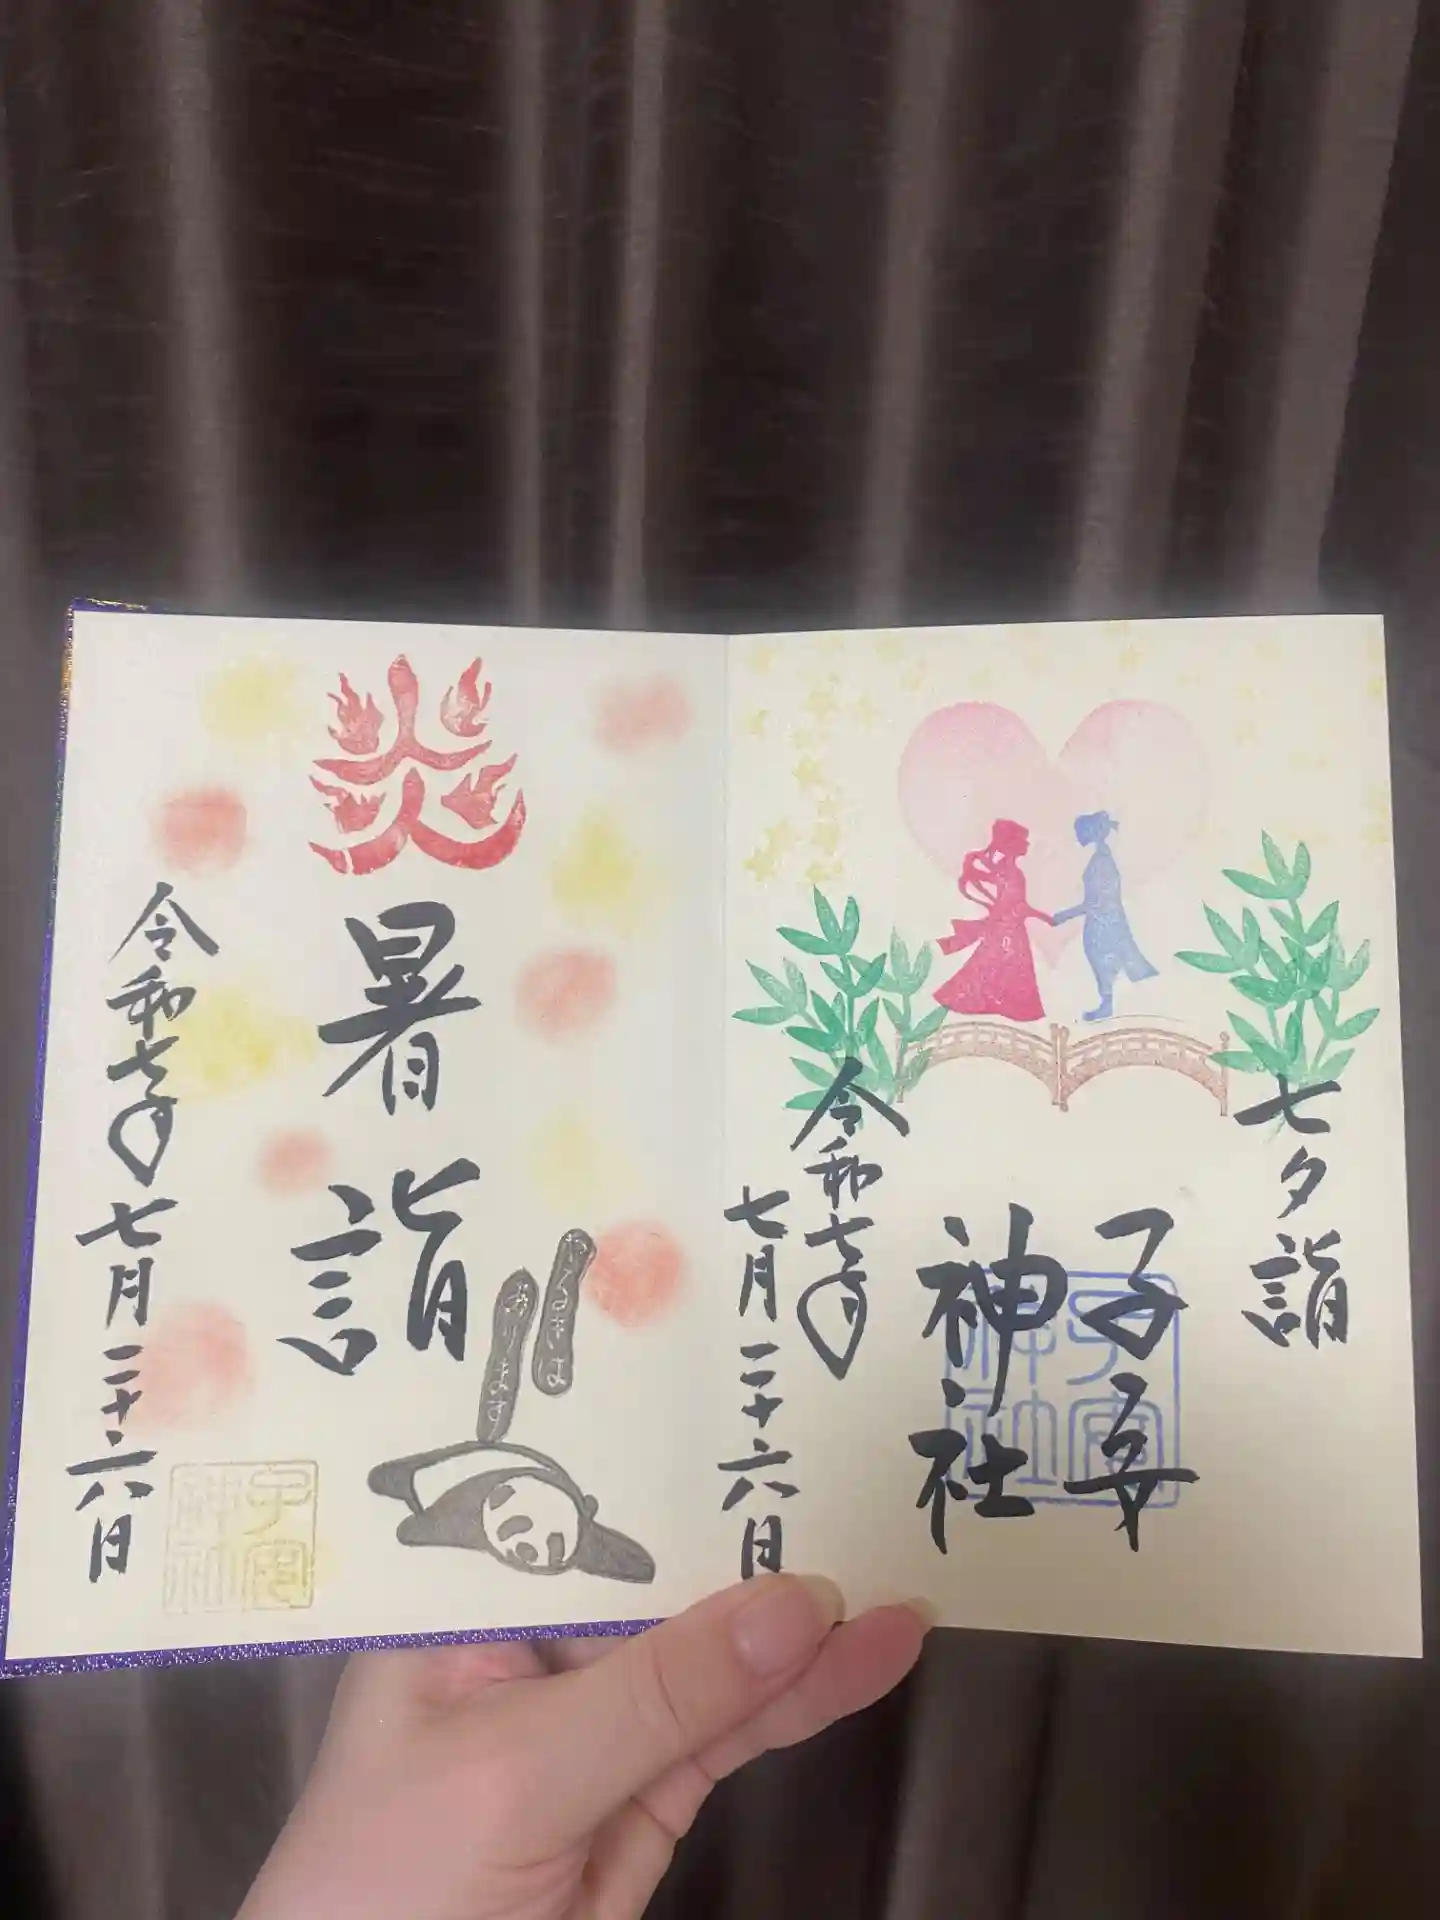 七夕詣
子安
神社
子安
神社
令和七年
七月二十六日
炎
暑詣
やるきは
あります
令和七年七月二十六日
子安
神社